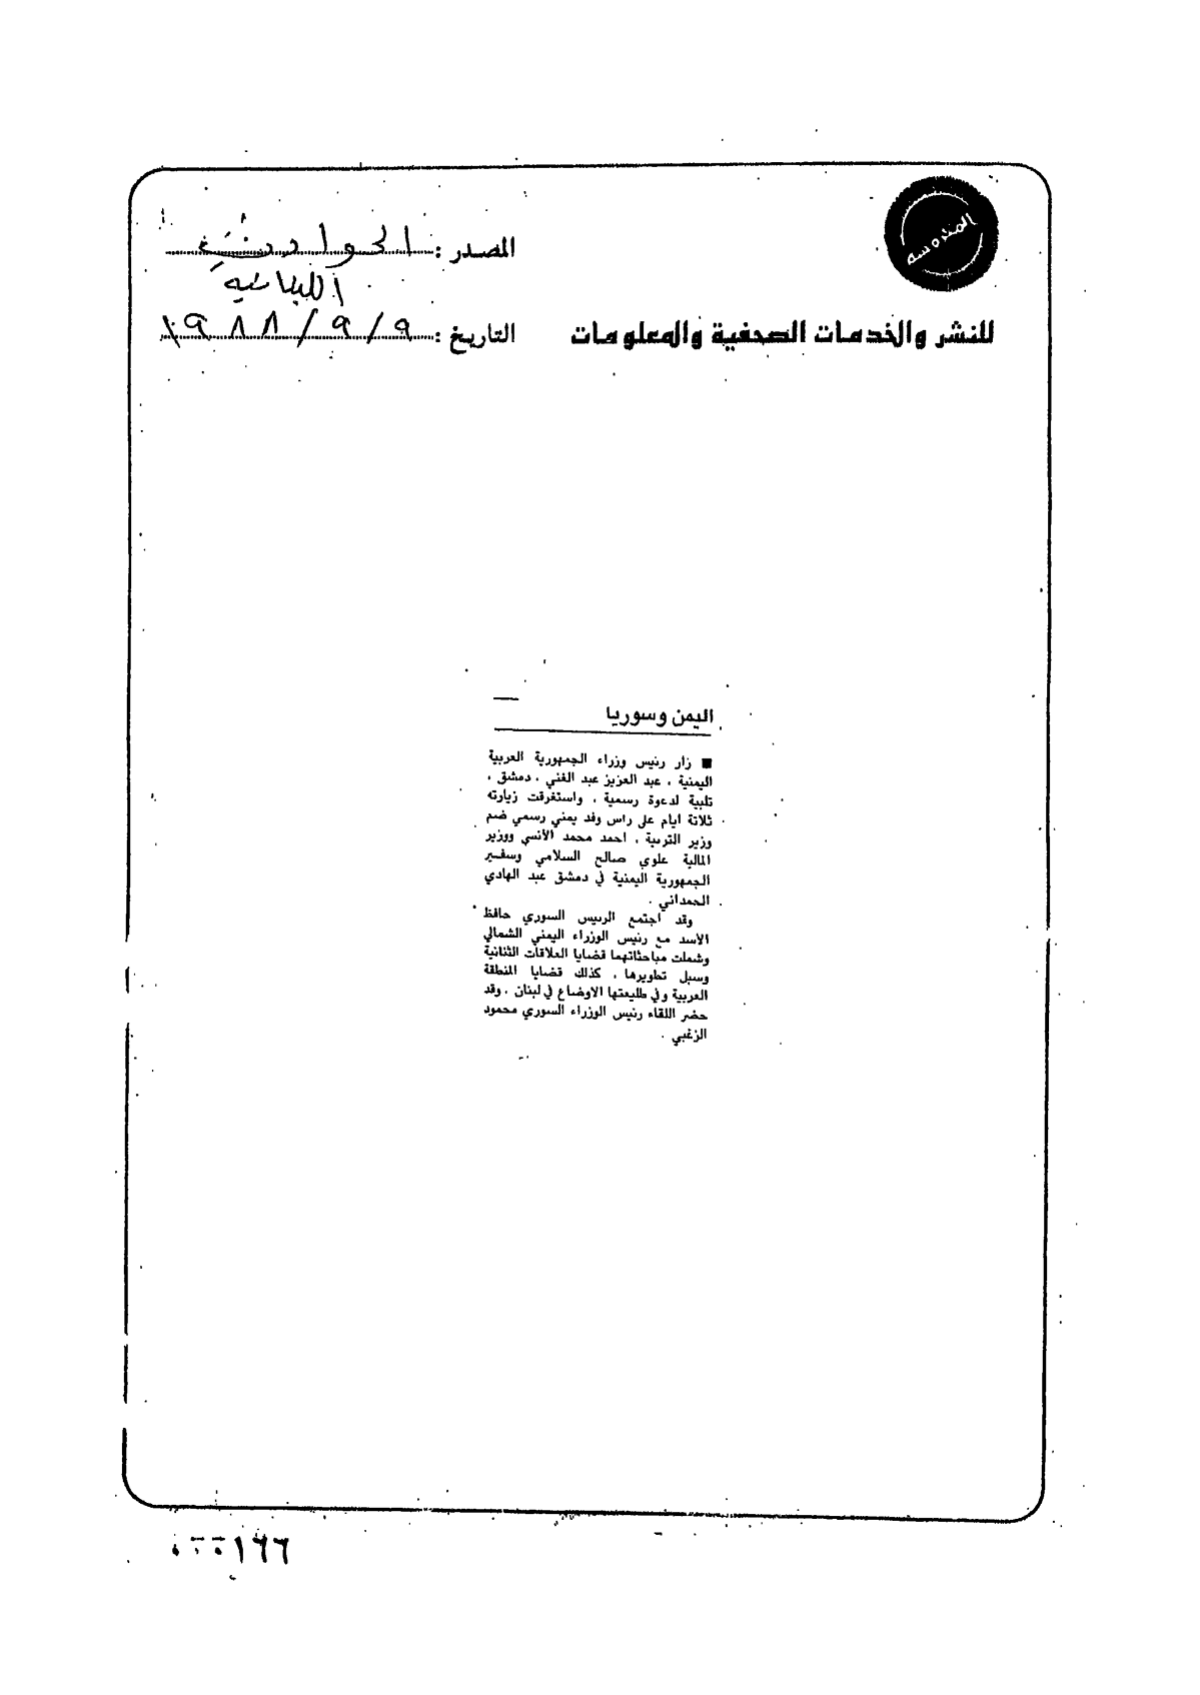 المصدر : الحوادث
اللبنانية
للنشر والخدمات الصحفية والمعلومات
التاريخ : ٩ / ٩ / ١٩٨٨
اليمن وسوريا
■ زار رئيس وزراء الجمهورية العربية
اليمنية ، عبد العزيز عبد الغني ، دمشق ،
تلبية لدعوة رسمية ، واستغرقت زيارته
ثلاثة ايام على راس وفد يمني رسمي ضم
وزير التربية ، احمد محمد الأنسي ووزير
المالية علوي صالح السلامي وسفير
الجمهورية اليمنية في دمشق عبد الهادي
الحمداني .
وقد اجتمع الرئيس السوري حافظ
الأسد مع رئيس الوزراء اليمني الشمالي
وشملت مباحثاتهما قضايا العلاقات الثنائية
وسبل تطويرها ، كذلك قضايا المنطقة
العربية وفي طليعتها الاوضاع في لبنان . وقد
حضر اللقاء رئيس الوزراء السوري محمود
الزغبي .